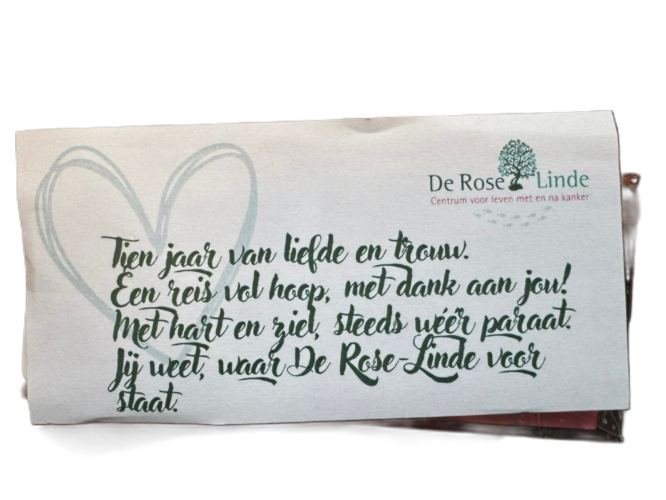 De Rose Linde
Centrum voor leven met en na kanker
Tien jaar van liefde en trouw.
Een reis vol hoop, met dank aan jou!
Met hart en ziel, steeds wéér paraat.
Jij weet, waar De Rose-Linde voor
staat.